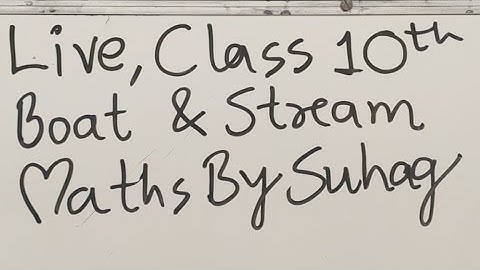 Live, Class 10th
Boat & Stream
Maths By Suhag